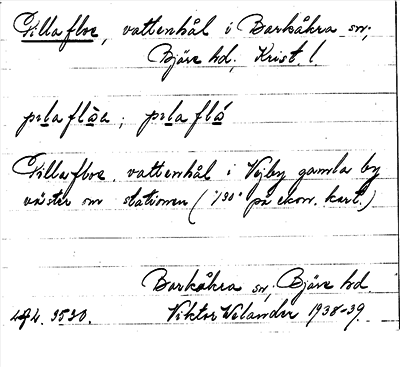 Pillafloe, vattenhål i Barkåkra sn;
Bjäre hd; Krist. l.
pelaflöa; pelafló
Pillafloe. vattenhål i Vejby gamla by
väster om stationen ( på ekon. kart.)
Barkåkra sn; Bjäre hd.
3530. Viktor Welander 1938-39.